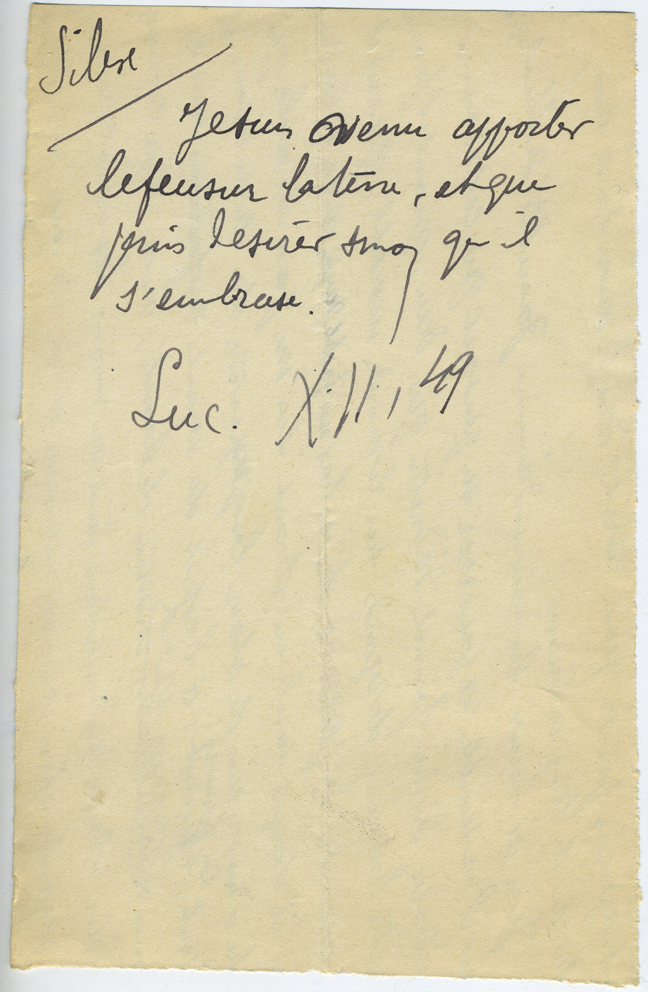 Je suis venu apporter
le feu sur la terre, et que
puis désirer sinon qu'il
s'embrase.
Luc. XII, 49